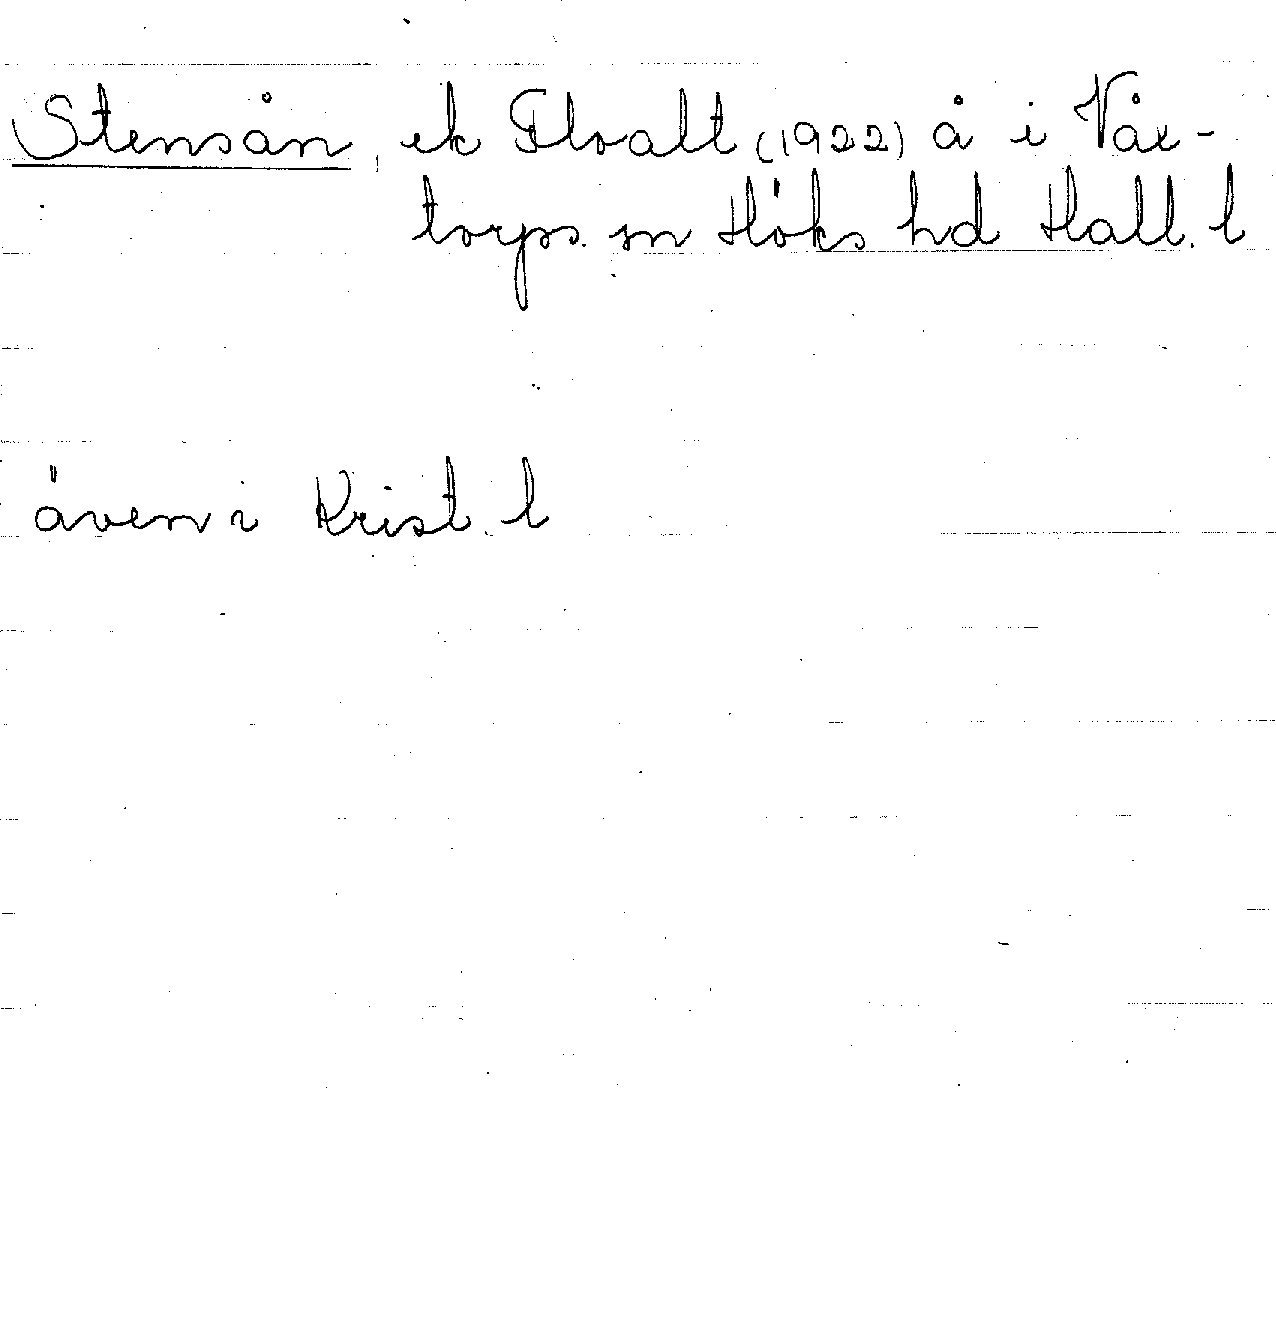 Stensån, ek Tlvalt (1922) å i Våx-
torps sn Höks hd Hall. l
även i Krist. l